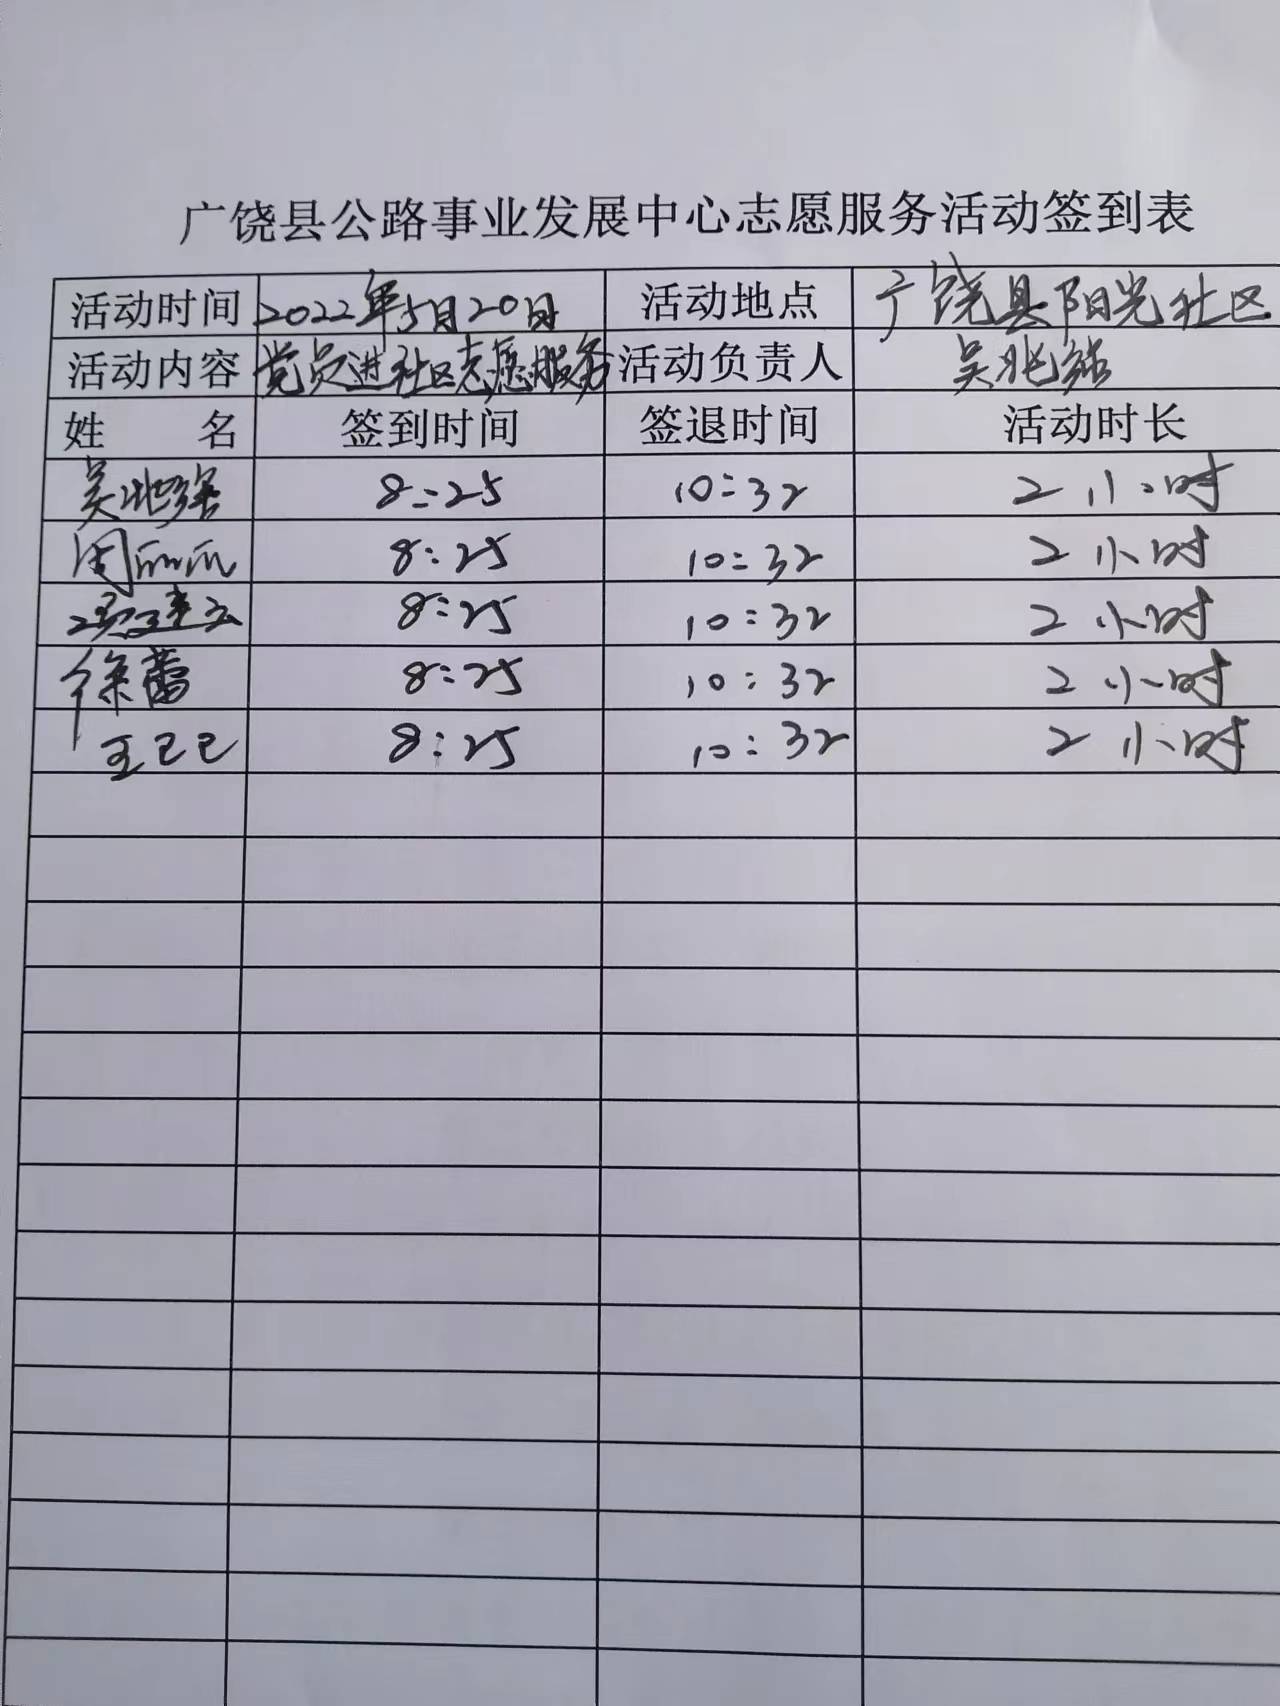 广饶县公路事业发展中心志愿服务活动签到表
活动时间 2022年5月20日 活动地点 广饶县阳光社区
活动内容 党员进社区志愿服务 活动负责人 吴兆强
姓 名 签到时间 签退时间 活动时长
吴兆强 8:25 10:32 2小时
周丽丽 8:25 10:32 2小时
8:25 10:32 2小时
徐蕾 8:25 10:32 2小时
王己己 8:25 10:32 2小时